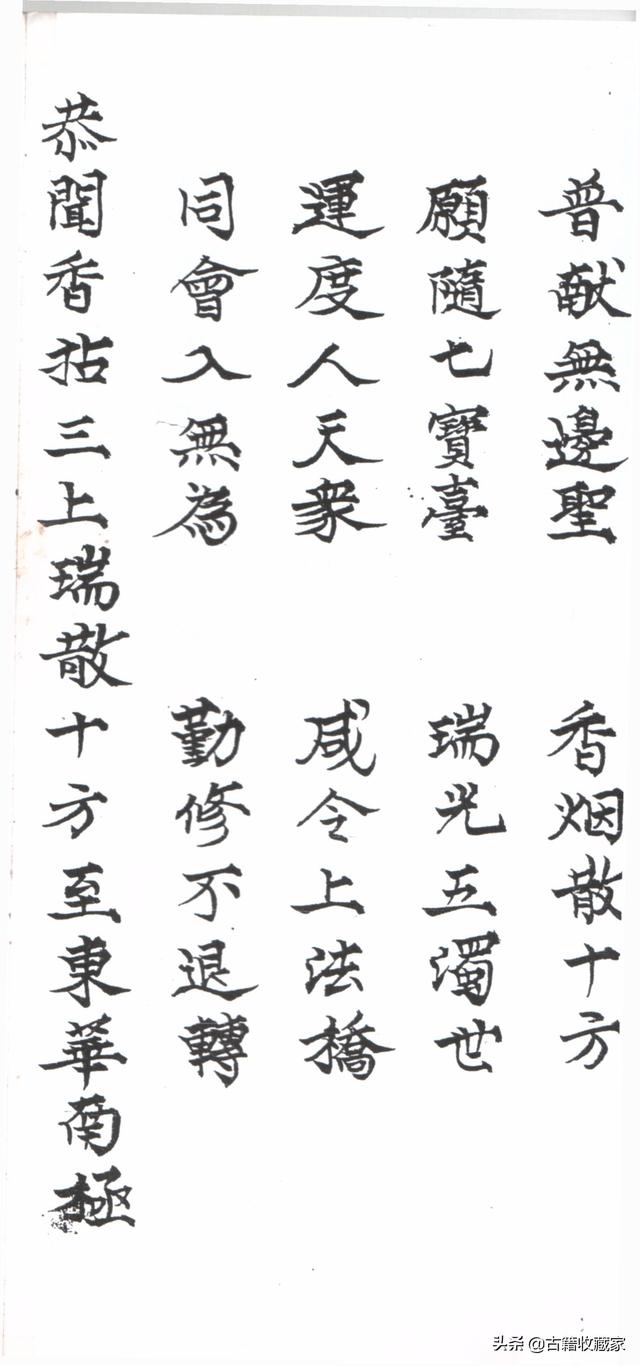 普献無邊聖 香烟散十方
願隨七寶臺 瑞光五濁世
運度人天衆 咸令上法橋
同會入無為 勤修不退轉
恭聞香拈三上瑞散十方至東華南極
头条 @古籍收藏家